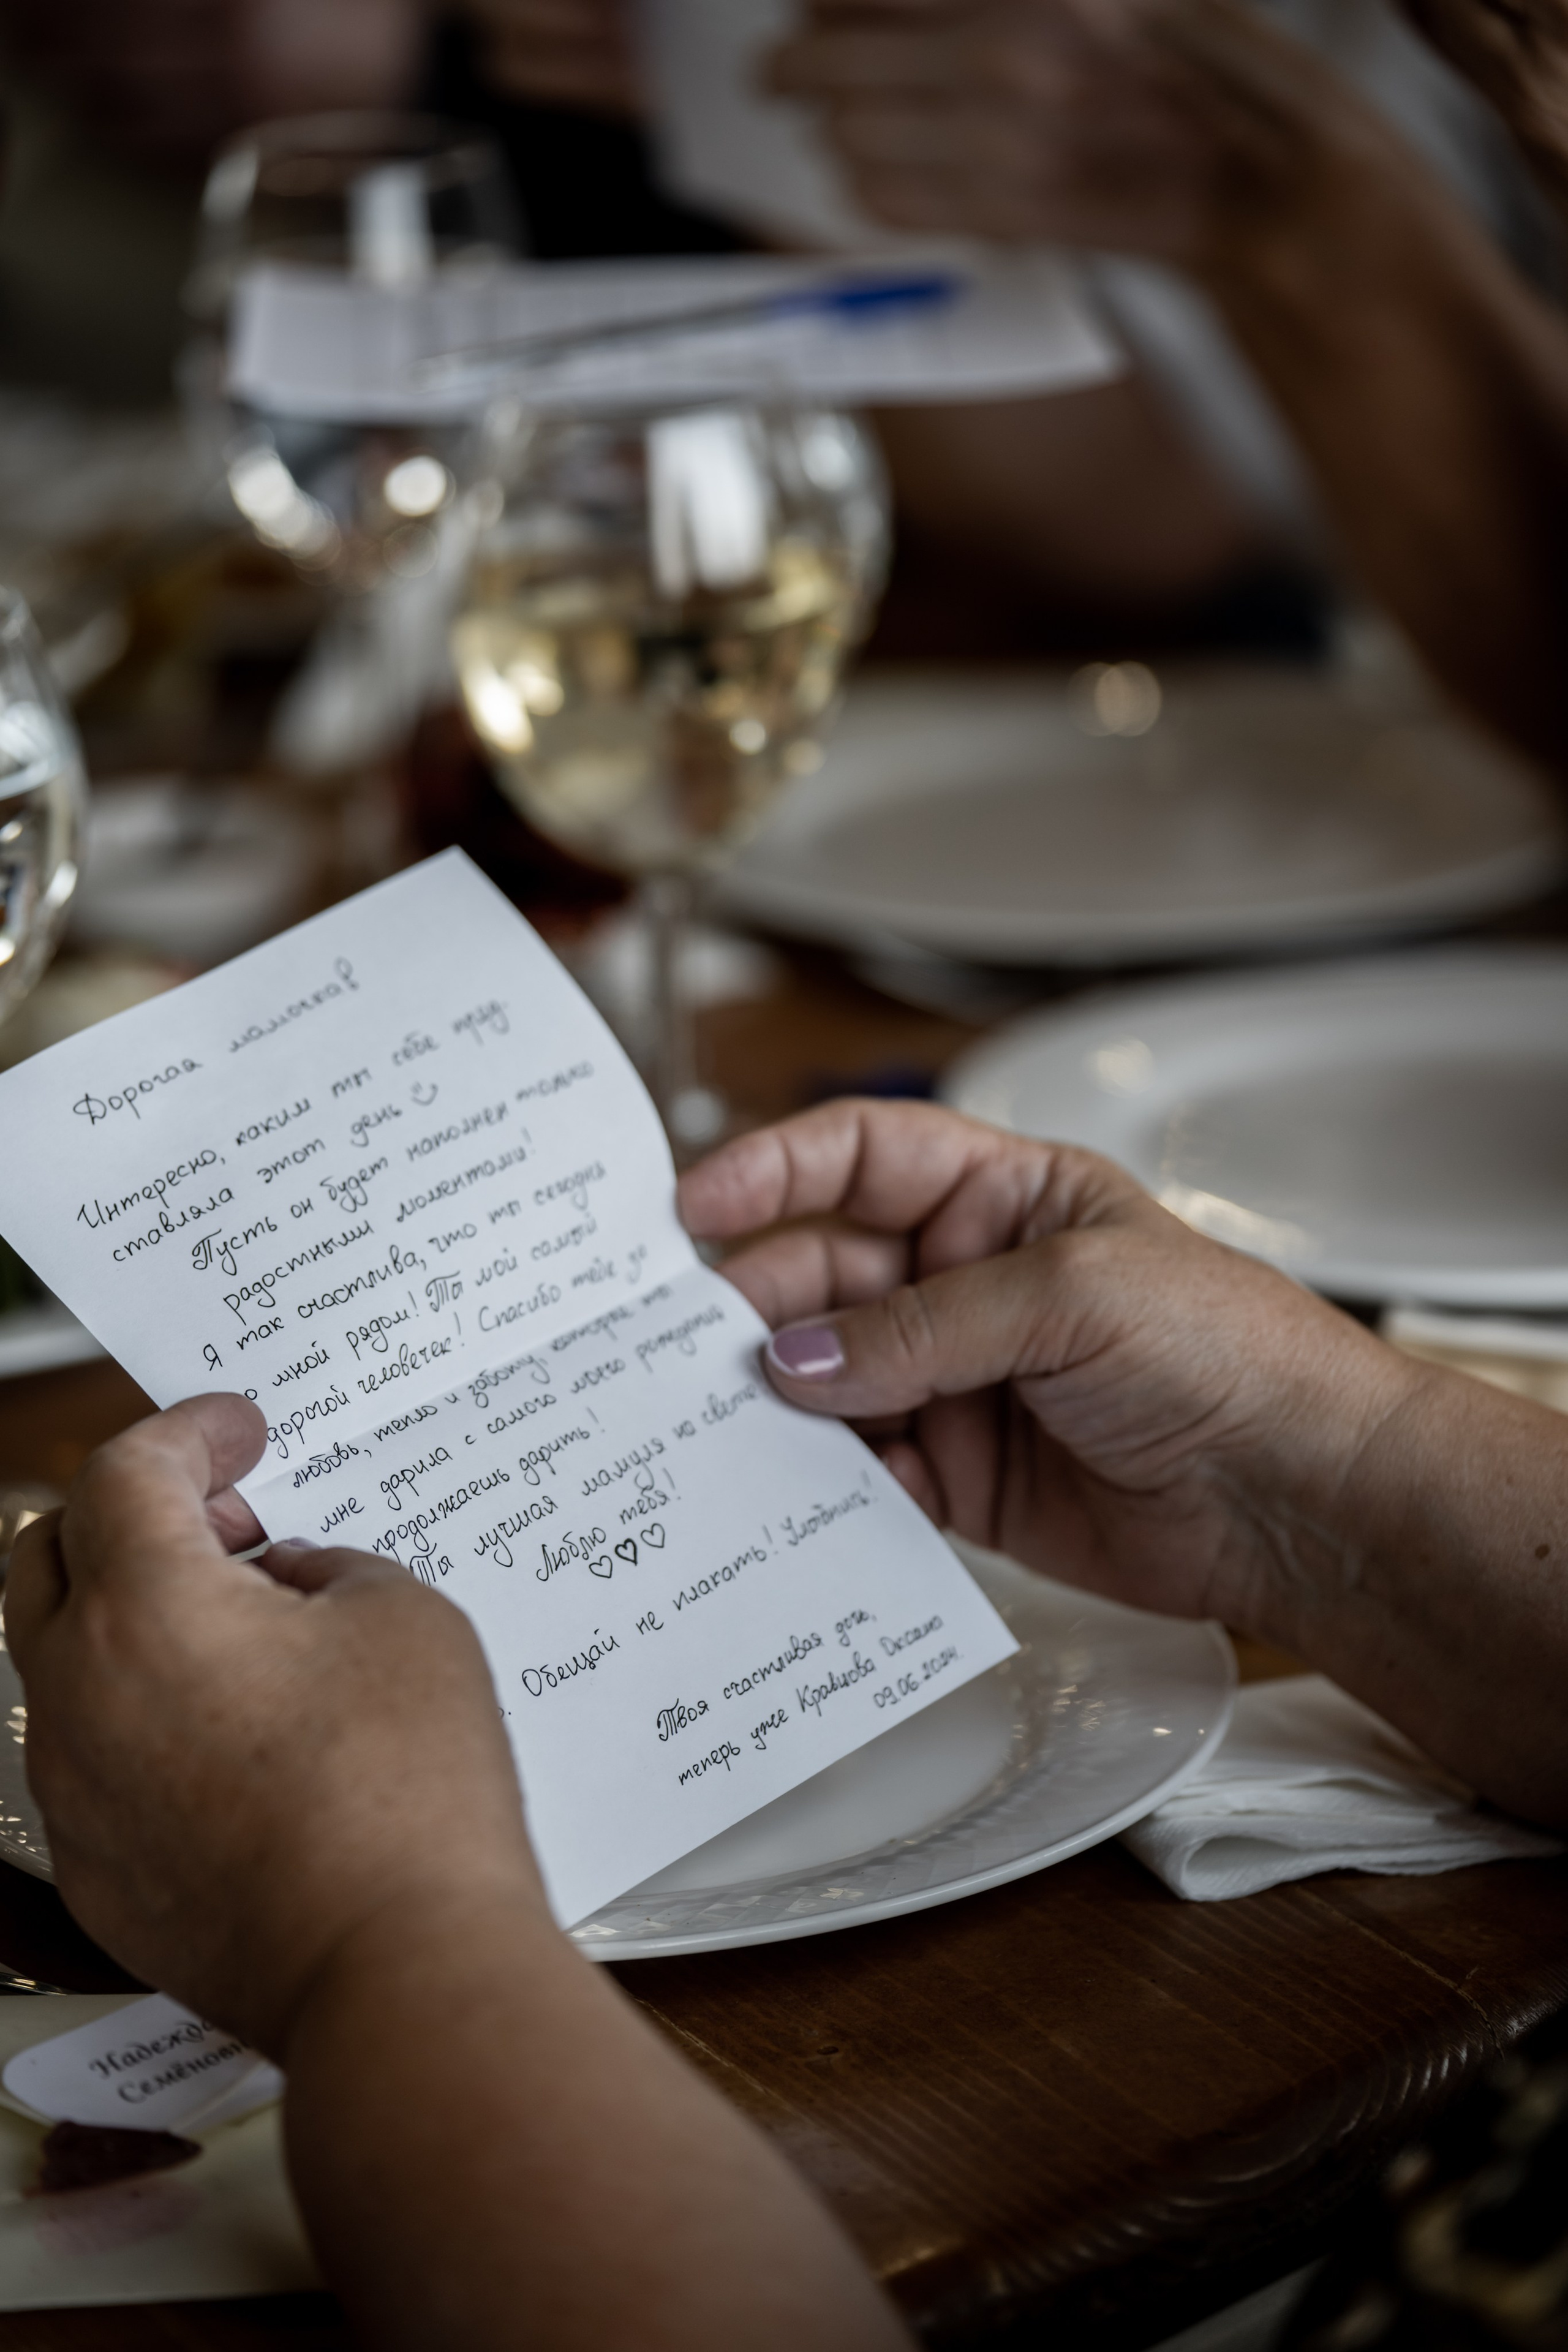 Дорогая мамочка!
Интересно, каким ты себе пред-
ставляла этот день
Пусть он будет наполнен только
радостными моментами!
Я так счастлива, что ты сегодня
о мной рядом! Ты мой самый
дорогой человечек! Спасибо тебе за
любовь, тепло и заботу, которые ты
мне дарила с самого моего рождения
продолжаешь дарить!
Ты лучшая мамуля на свете
Люблю тебя!
Обещай не плакать! Улыбнись!
Твоя счастливая дочь,
теперь уже Кравцова Оксана
09.06.2024.
Надежда
Семёновн